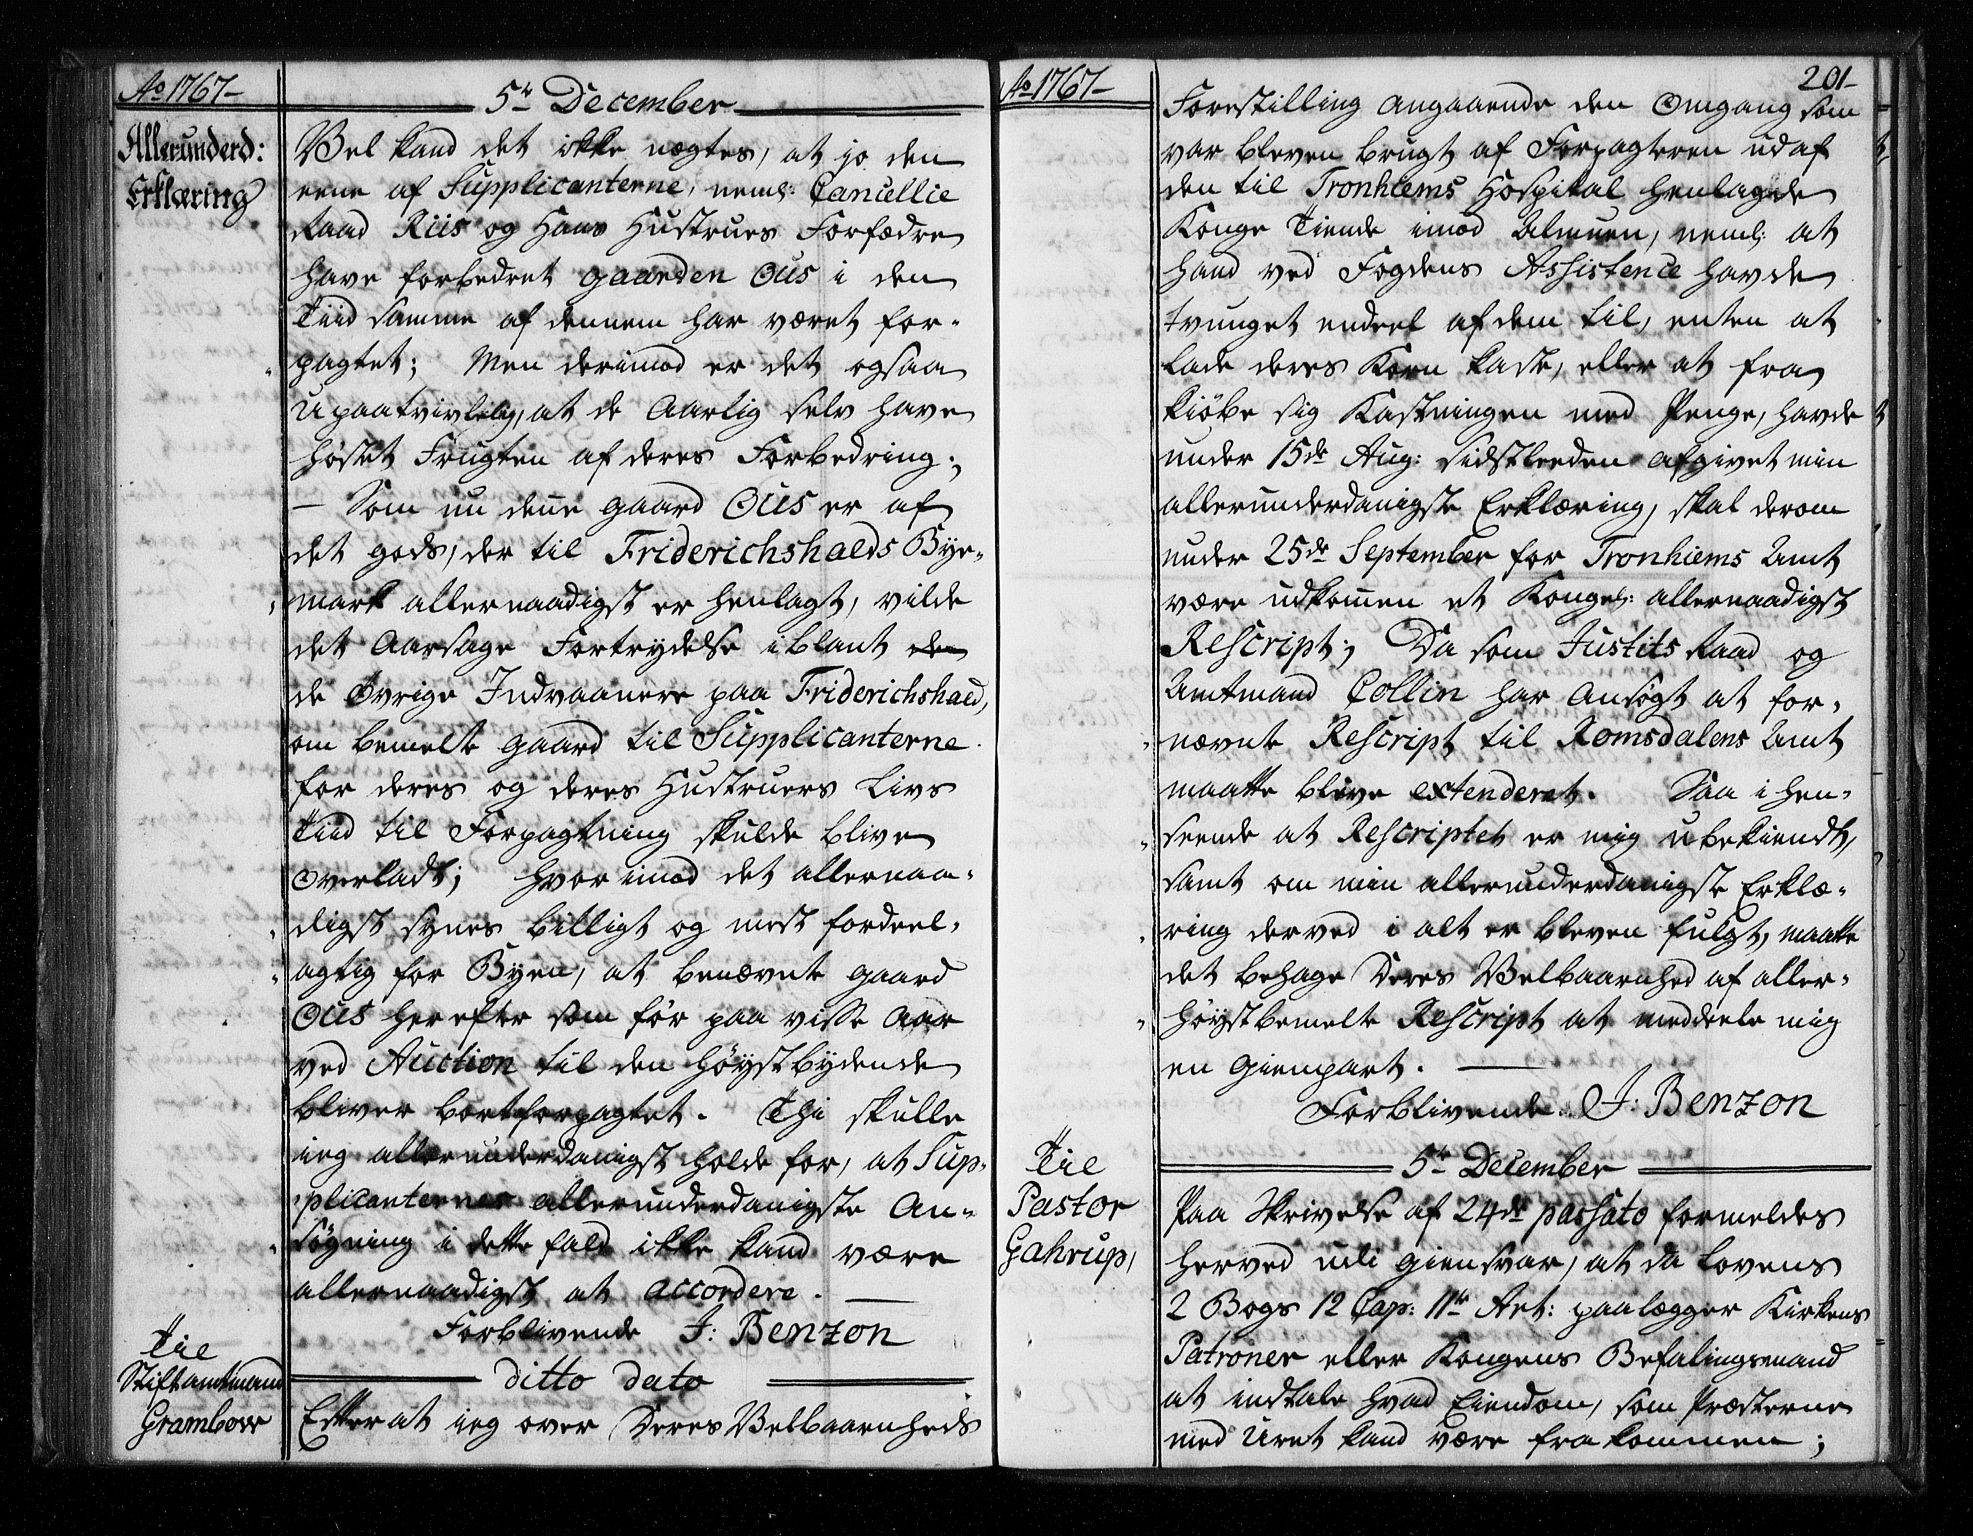 Ao 1767-
5te December
Allerunderd:
Erklæring
Vel kand det ikke nægtes, at jo den
eene af Supplicanterne, neml: Cancellie
Raad Riis og Hans Hustrues Forfædre
have forbedret gaarden Ous i den
Tiid samme af dennem har været for-
pagtet; Men derimod er det ogsaa
upaatvivlelig, at de Aarlig selv have
høstet Frugten af deres Forbedring;
— Som nu denne gaard Ous er af
det gods, der til Friderichshalds Bye-
mark allernaadigst er henlagt, vilde
det Aarsage Fortrydelse iblant de
de Øvrige Indvaanere paa Friderichshald,
om bemelte gaard til Supplicanterne
for deres og deres Hustruers Livs
Tiid til Forpagtning skulde blive
Overladt; hvorimod det allernaa-
digst synes billigt og mest fordeel-
agtig for Byen, at benævnte gaard
Ous herefter som før paa visse Aar
ved Auction til den høystbydende
bliver bortforpagtet. Thi skulle
ieg allerunderdanigst holde for, at Sup-
plicanternes allerunderdanigste An-
søgning i dette fald ikke kand være
allernaadigst at accordere. —
Forblivende J: Benzon
ditto dato
Til
Stiftamtmand
Grambow
Efterat ieg over Deres Velbaarnheds
Ao 1767-
201-
Forestilling angaaende den Omgang som
var bleven brugt af Forpagteren udaf
den til Tronhiems Hospital henlagde
Konge Tiende imod Almuen, neml: at
hand ved Fogdens Assistence havde
tvunget endeel af dem til, enten at
lade deres Korn kaste, eller at fra
kiøbe sig Kastningen med Penge, havde
under 15de Aug: sidstleeden afgivet min
allerunderdanigste Erklæring, skal derom
under 25de September for Tronhiems Amt
være udkommen et Kongel: allernaadigst
Rescript; Da som Justits Raad og
Amtmand Collin har Ansøgt at for-
nævnte Rescript til Romsdalens Amt
maatte blive extenderet. Saa i hen-
seende at Rescriptet er mig ubekiendt,
samt om min allerunderdanigste Erklæ-
ring derved i alt er bleven fulgt, maatte
det behage Deres Velbaarnhed af aller-
høystbemelte Rescript at meddeele mig
en Gienpart. —
Forblivende J: Benzon
5te December
Til
Pastor
Gahrup,
Paa Skrivelse af 24de passato formeldes
herved udi giensvar, at da Lovens
2 Bogs 12 Cap: 11te Art: paalægger Kirkens
Patroner eller Kongens Befalingsmand
at indtale hvad Eiendom, som Præsterne
med Uret kand være frakommen;